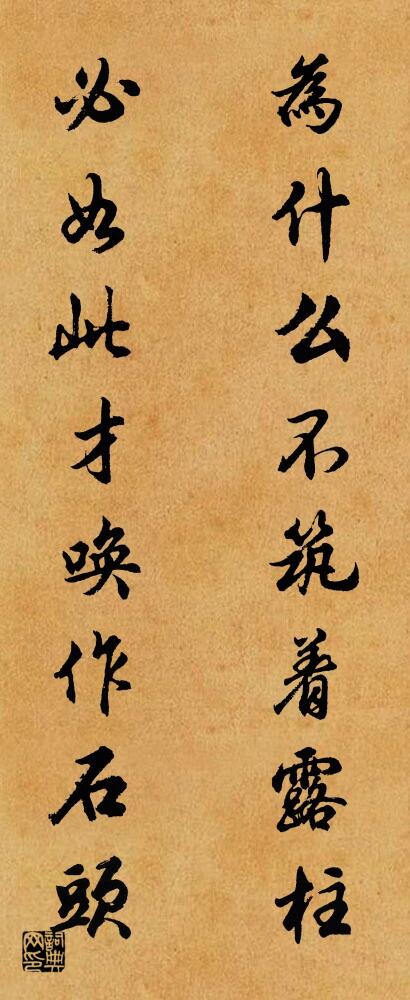 為什么不筑着露柱
必如此才唤作石頭
詞典网印